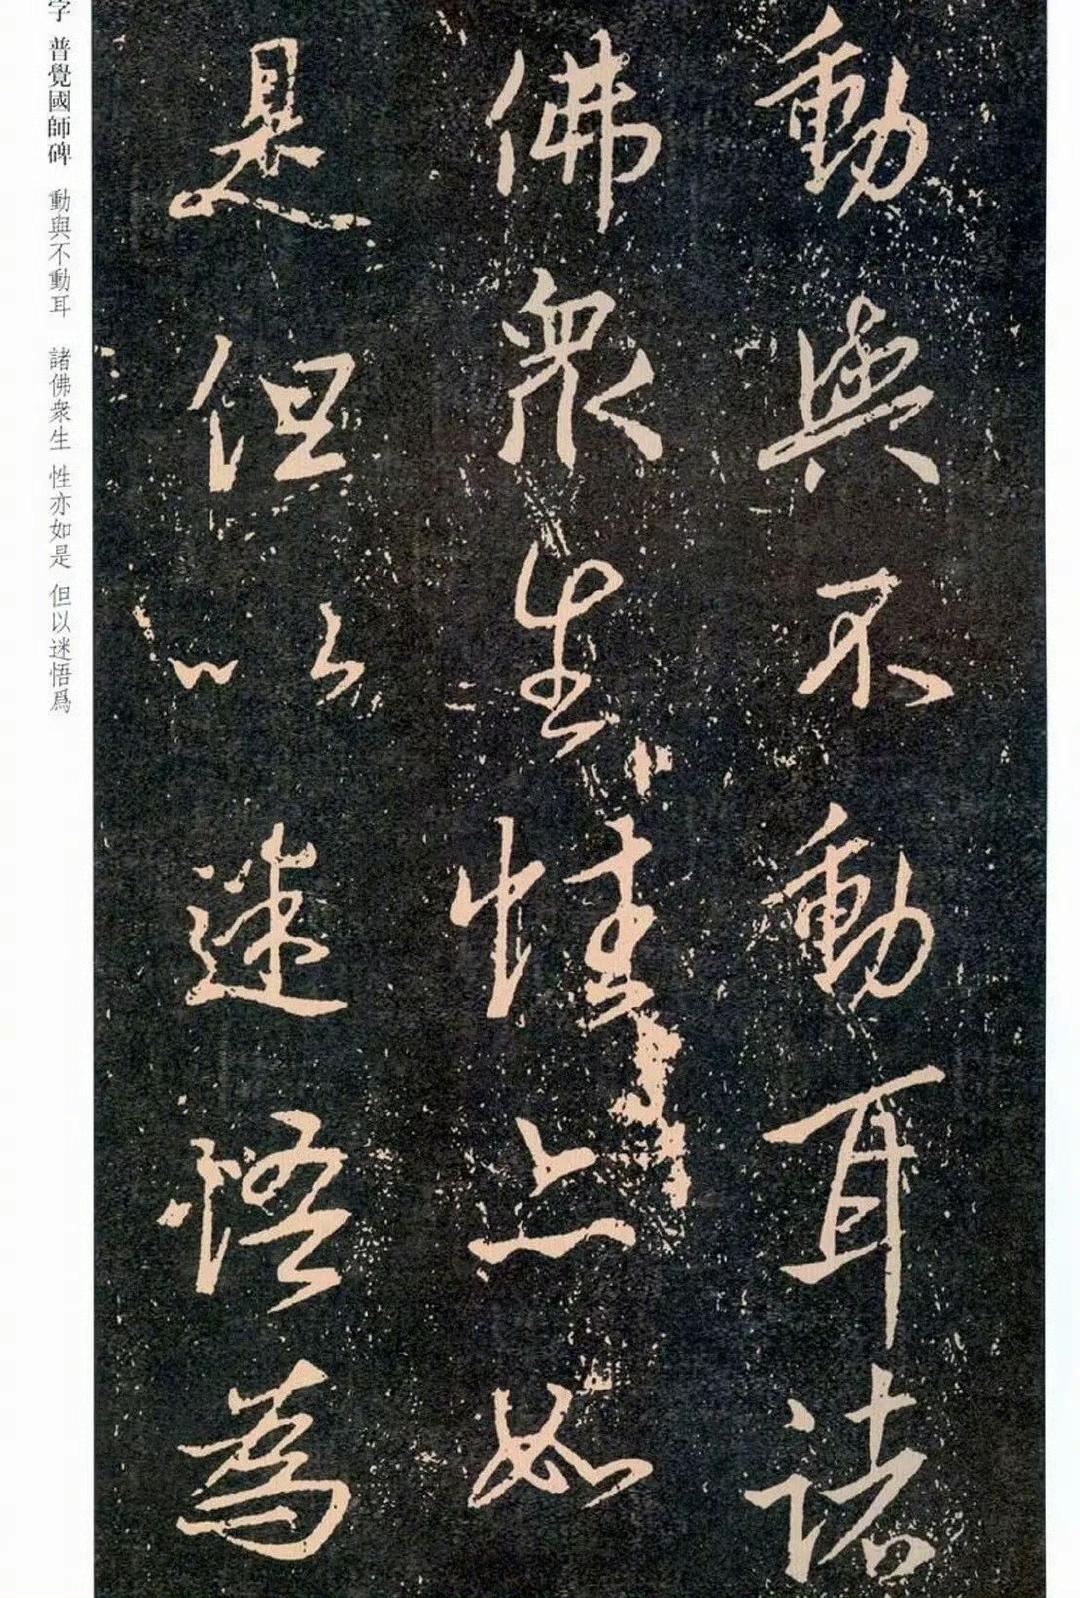 動與不動耳諸
佛衆生性亦如
是但以迷悟為
字 普覺國師碑 動與不動耳 諸佛衆生 性亦如是 但以迷悟爲